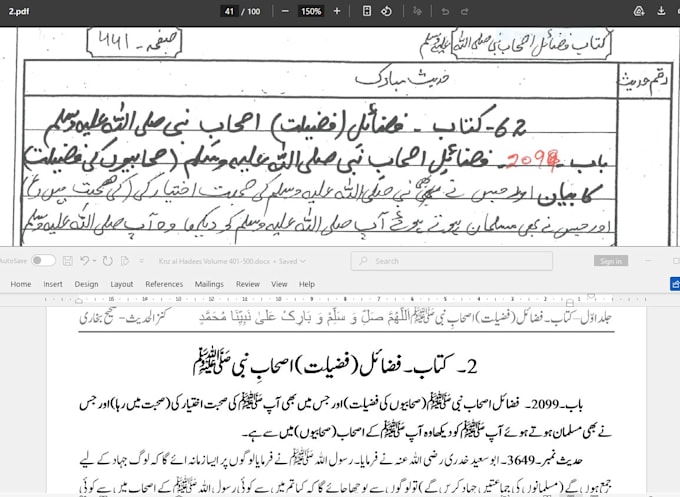 2.pdf
41 / 100
150%
کتاب فضائل اصحاب نبی صلی اللہ علیہ وسلم
صفحہ - ۴۴۱
رقم حدیث
حدیث مبارک
62- کتاب - فضائل (فضیلت) اصحاب نبی صلی اللہ علیہ وسلم
باب - 2099- فضائل اصحاب نبی صلی اللہ علیہ وسلم (صحابیوں کی فضیلت)
کا بیان اور جس نے بھی نبی صلی اللہ علیہ وسلم کی صحبت اختیار کی (کی صحبت میں رہا)
اور جس نے بھی مسلمان ہوتے ہوئے آپ صلی اللہ علیہ وسلم کو دیکھا وہ آپ صلی اللہ علیہ وسلم
AutoSave Off
Knz al Hadees Volume 401-500.docx • Saved
Search
Sign in
Home Insert Design Layout References Mailings Review View Help
جلد اوّل - کتاب - فضائل (فضیلت) اصحابِ نبی ﷺ اَللّٰھُمَّ صَلِّ وَ سَلِّمْ وَ بَارِکْ عَلٰی نَبِیِّنَا مُحَمَّدٍ کنز الحدیث - صحیح بخاری
2- کتاب - فضائل (فضیلت) اصحابِ نبی ﷺ
باب-2099- فضائل اصحاب نبی ﷺ (صحابیوں کی فضیلت) اور جس میں بھی آپ ﷺ کی صحبت اختیار کی (صحبت میں رہا) اور جس
نے بھی مسلمان ہوتے ہوئے آپ ﷺ کو دیکھا وہ آپ ﷺ کے اصحاب (صحابیوں) میں سے ہے۔
حدیث نمبر-3649- ابو سعید خدری رضی اللہ عنہ نے فرمایا۔ رسول اللہ ﷺ نے فرمایا لوگوں پر ایسا زمانہ آئے گا کہ لوگ جہاد کے لیے
جمع ہوں گے (مسلمانوں کی جماعتیں جہاد کریں گے) تو لوگوں سے پوچھا جائے گا کیا تم میں سے کوئی رسول اللہ ﷺ کے اصحاب میں سے کوئی